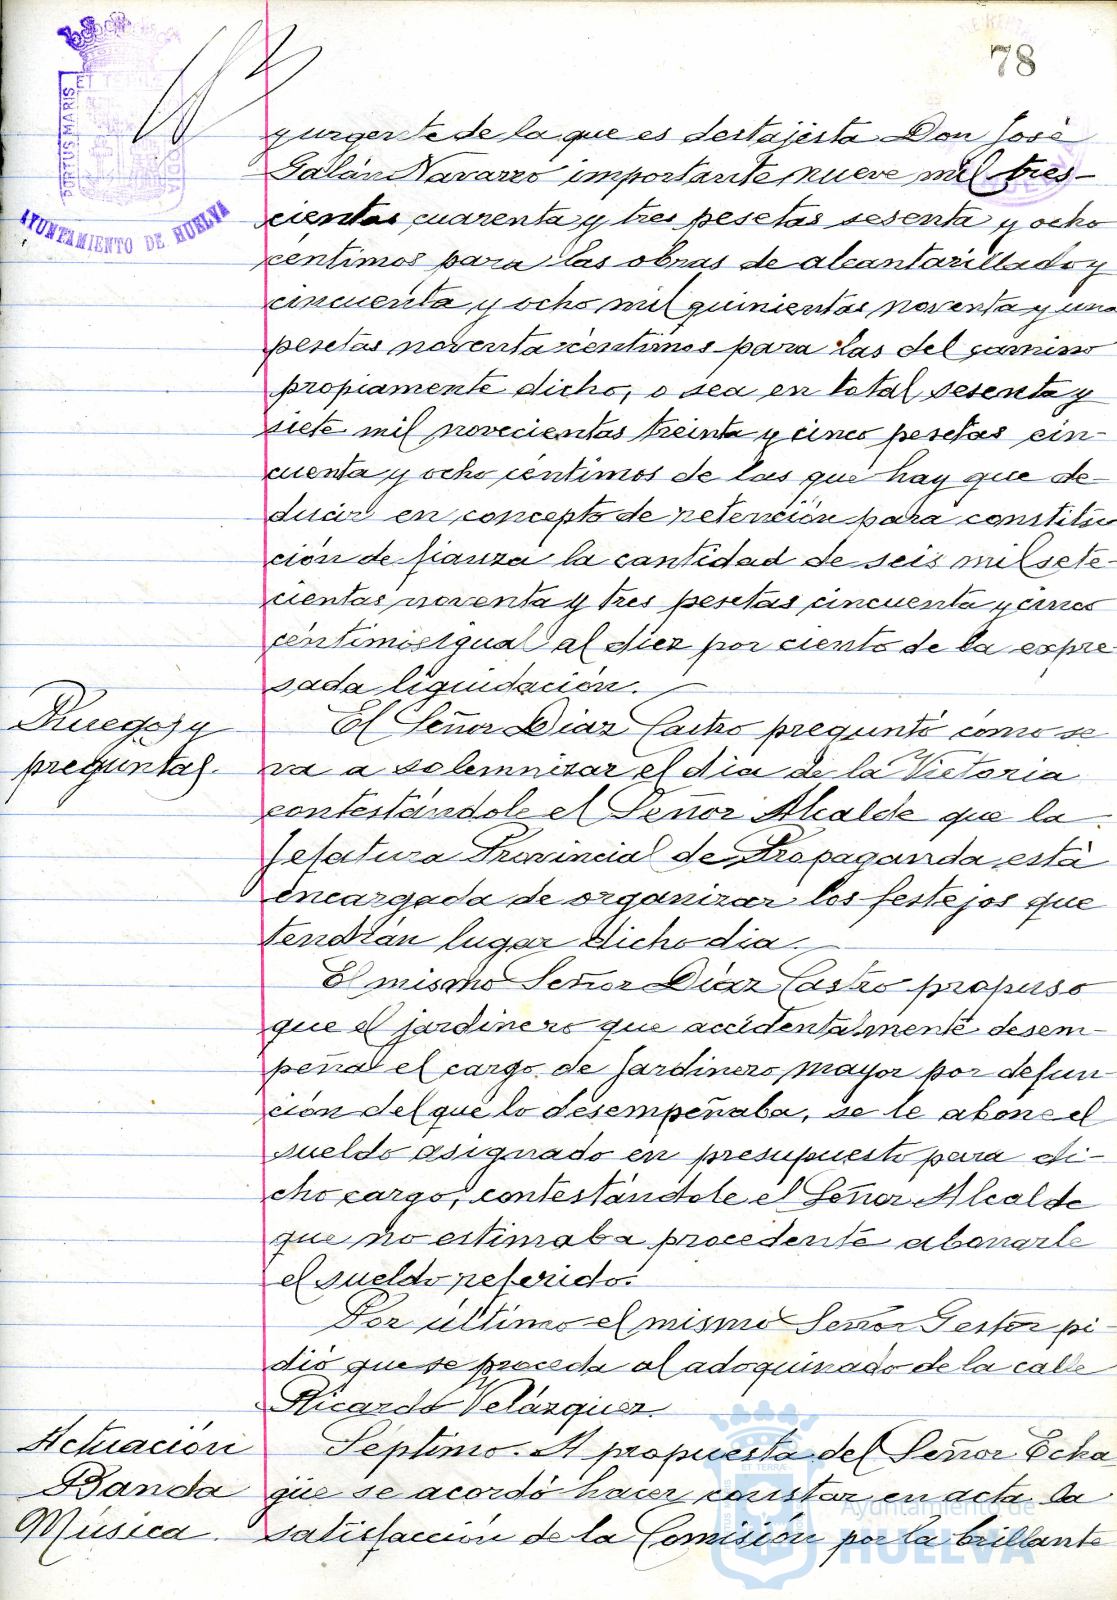 78
PORTUS MARIS
ET TERRE
CUSTODIA
AYUNTAMIENTO DE HUELVA
y urgente de la que es destajista Don José
Galán Navarro importante nueve mil tres-
cientas cuarenta y tres pesetas sesenta y ocho
céntimos para las obras de alcantarillado y
cincuenta y ocho mil quinientas noventa y una
pesetas noventa céntimos para las del camino
propiamente dicho, o sea en total sesenta y
siete mil novecientas treinta y cinco pesetas cin-
cuenta y ocho céntimos de las que hay que de-
ducir en concepto de retención para constitu
ción de fianza la cantidad de seis mil sete-
cientas noventa y tres pesetas cincuenta y cinco
céntimos igual al diez por ciento de la expre-
sada liquidación.
Ruegos y
preguntas.
El Señor Díaz Castro preguntó cómo se
va a solemnizar el día de la Victoria
contestándole el Señor Alcalde que la
Jefatura Provincial de Propaganda está
encargada de organizar los festejos que
tendrán lugar dicho día.
El mismo Señor Díaz Castro propuso
que el jardinero que accidentalmente desem-
peña el cargo de Jardinero mayor por defun-
ción del que lo desempeñaba, se le abone el
sueldo asignado en presupuesto para di-
cho cargo, contestándole el Señor Alcalde
que no estimaba procedente abonarle
el sueldo referido.
Por último el mismo Señor Gestor pi-
dió que se proceda al adoquinado de la calle
Ricardo Velázquez.
Actuación
Banda
Música.
Séptimo. A propuesta del Señor Echa
güe se acordó hacer constar en acta la
satisfacción de la Comisión por la brillante
Ayuntamiento de
HUELVA